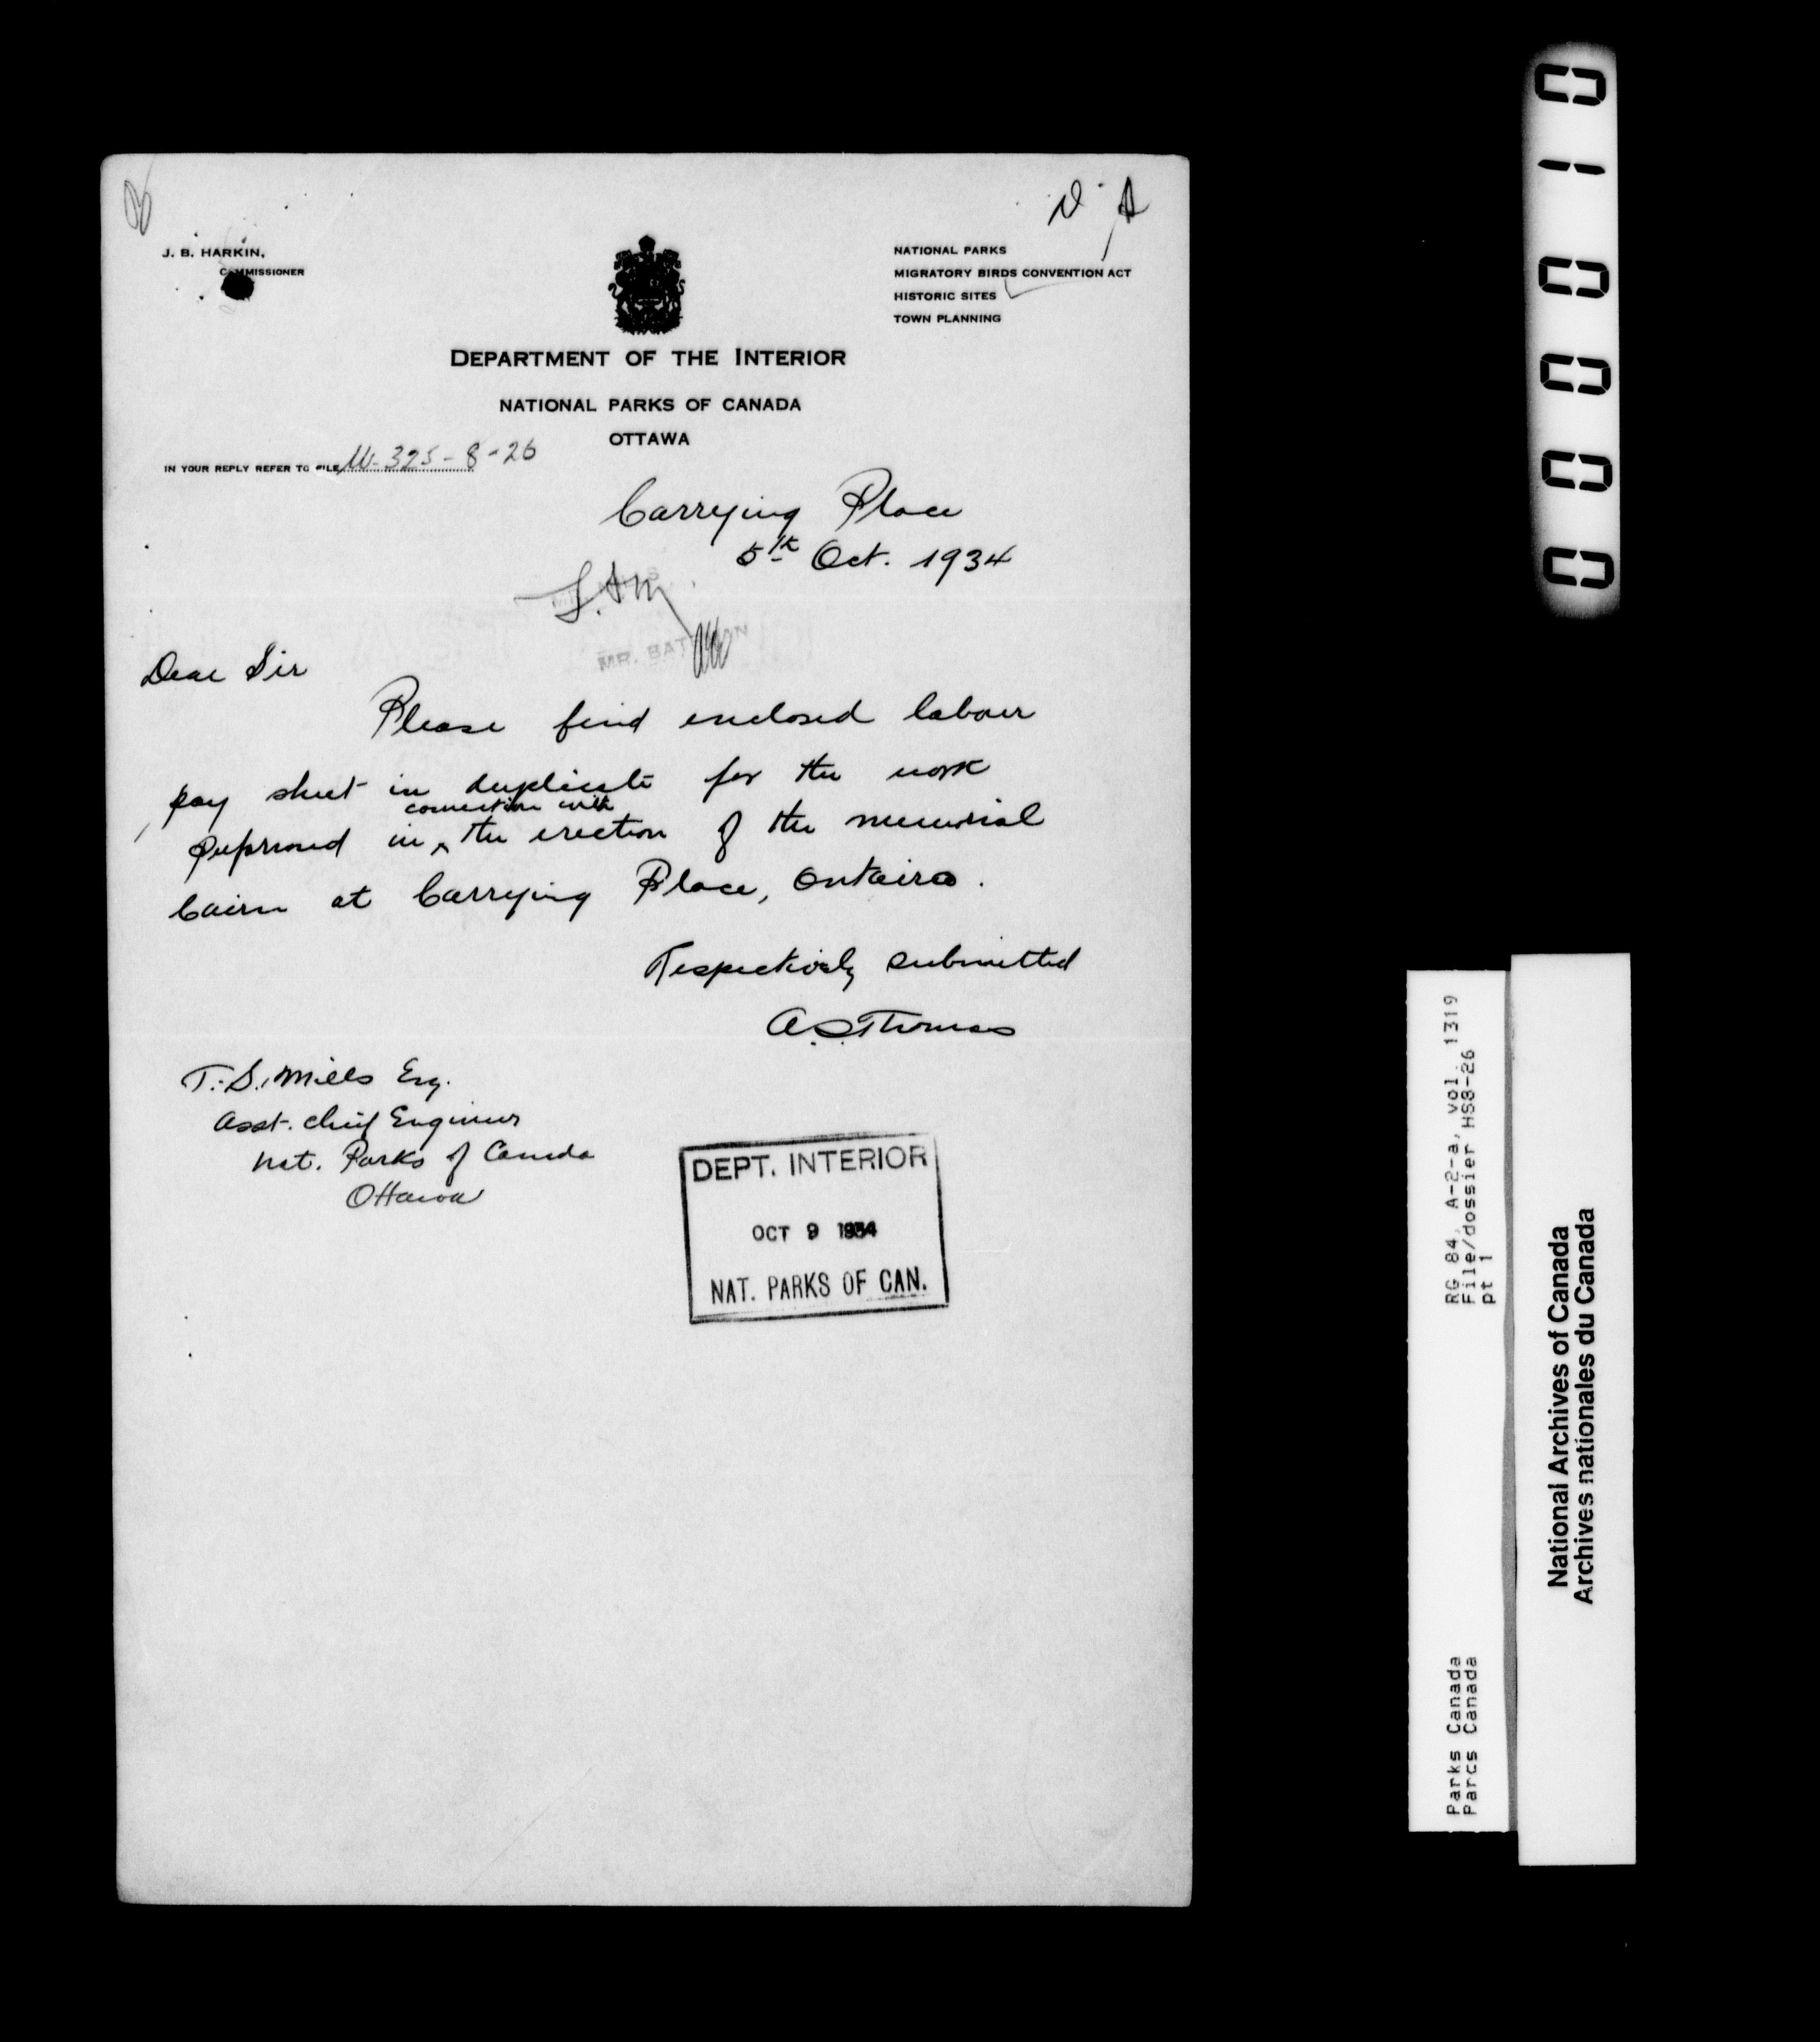 J. B. HARKIN,
COMMISSIONER
NATIONAL PARKS
MIGRATORY BIRDS CONVENTION ACT
HISTORIC SITES
TOWN PLANNING
DEPARTMENT OF THE INTERIOR
NATIONAL PARKS OF CANADA
OTTAWA
IN YOUR REPLY REFER TO FILE 325-8-26
Carrying Place
5th Oct. 1934
Dear Sir
Please find enclosed labour
pay sheet in duplicate for the work
connection with
in ^ the erection of the memorial
Cairn at Carrying Place, Ontairo.
submitted
A.S. Thomas
T. S. Mills Esq.
Asst. Chief Engineer
Nat. Parks of Canada
Ottawa
DEPT. INTERIOR
OCT 9 1934
NAT. PARKS OF CAN.
000010
RG 84, A-2-a, vol. 1319
File/dossier HS8-26
pt 1
Parks Canada
Parcs Canada
National Archives of Canada
Archives nationales du Canada